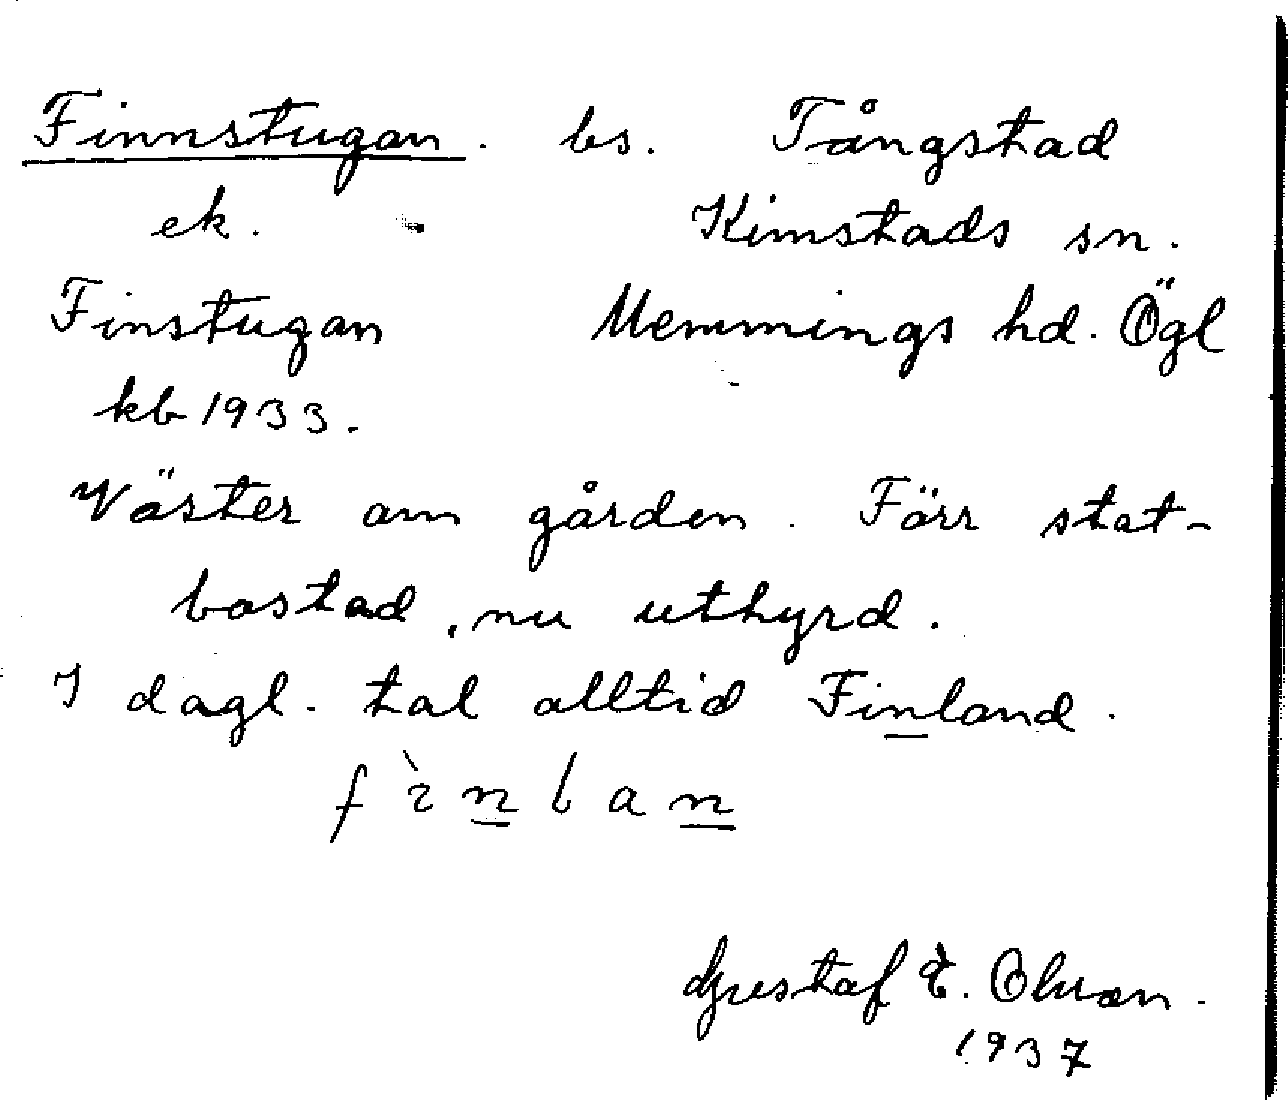 Finnstugan. bs. Tångstad
ek. Kimstads sn.
Finstugan Memmings hd. Ögl
kb 1933.
Väster om gården. Förr stat-
bostad, nu uthyrd.
I dagl. tal alltid Finland.
fìnlan
Gustaf E. Olsson.
1937